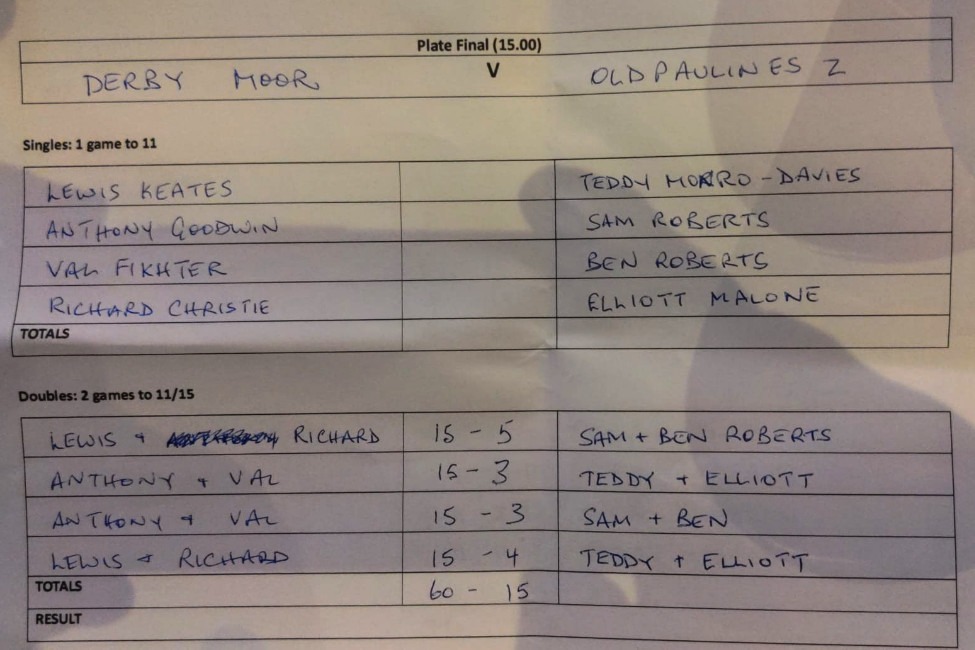 Plate Final (15.00)
DERBY MOOR V OLD PAULINES 2
Singles: 1 game to 11
LEWIS KEATES TEDDY MONRO-DAVIES
ANTHONY GOODWIN SAM ROBERTS
VAL FIKHTER BEN ROBERTS
RICHARD CHRISTIE ELLIOTT MALONE
TOTALS
Doubles: 2 games to 11/15
LEWIS + RICHARD 15 - 5 SAM + BEN ROBERTS
ANTHONY + VAL 15 - 3 TEDDY + ELLIOTT
ANTHONY + VAL 15 - 3 SAM + BEN
LEWIS + RICHARD 15 - 4 TEDDY + ELLIOTT
TOTALS 60 - 15
RESULT